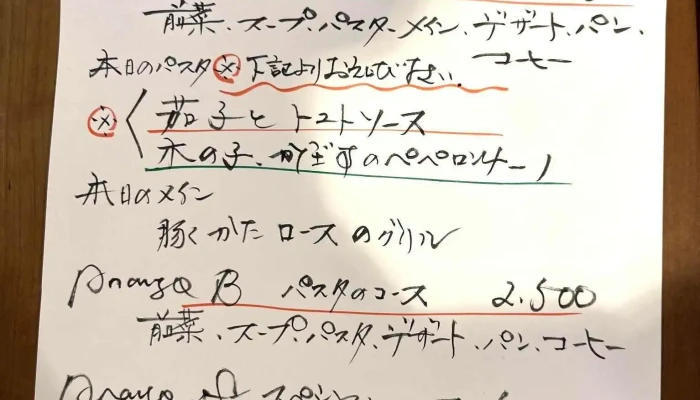 前菜、スープ、パスタ、メイン、デザート、パン、
コーヒー
本日のパスタ ※下記よりお選び下さい。
※ 茄子とトマトソース
木の子、かぼすのペペロンチーノ
本日のメイン
豚くびかたロースのグリル
Pranzo B パスタのコース 2,500
前菜、スープ、パスタ、デザート、パン、コーヒー
Pranzo